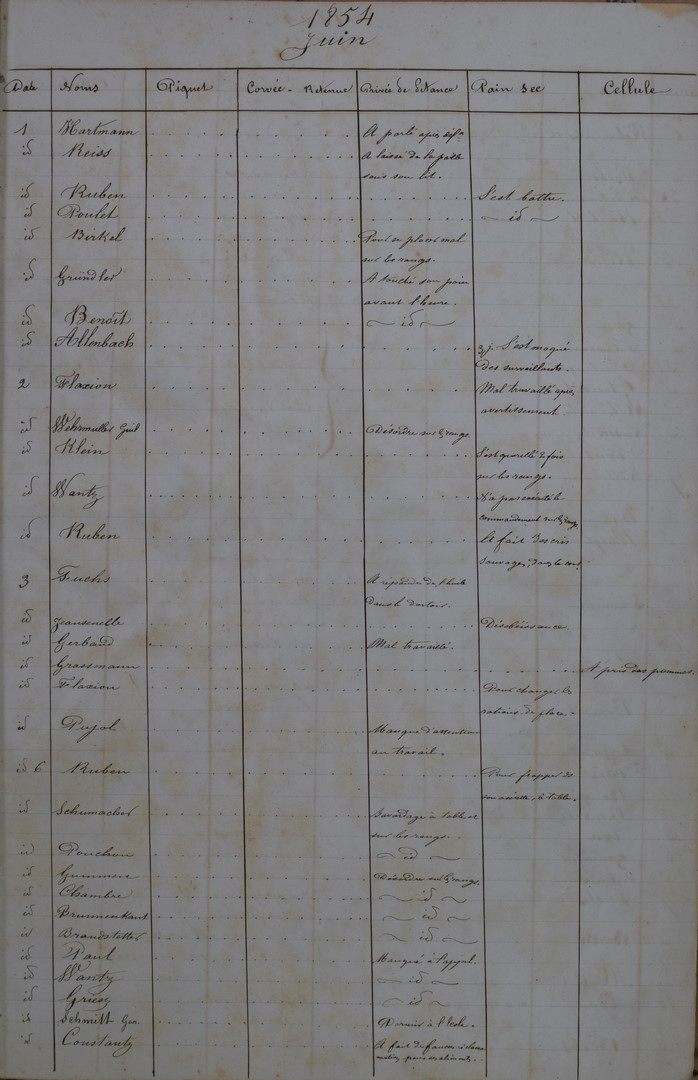 1854
Juin
Date Noms Piquet Corvée - Retenue Privée de pitance Pain sec Cellule
1 Hartmann A parlé après
id Reiss A laissé de la
sous son lit.
id Ruben S'est battu.
id Poulet id
id Birkel Pour se placer mal
sur les rangs.
id Gründler A touché son pain
avant l'heure.
id Benoît id
id Allenbach 3 j. S'est moqué
des surveillants.
2 Flaxion Mal travaillé après
avertissement
id Wehrmuller Guil Désordre sur les rangs.
id Klein S'est querellé 2 fois
sur les rangs.
id Wantz N'a pas exécuté le
commandement sur les rangs
id Ruben A fait des cris
sauvages, dans la
3 Fuchs A répandu de l'huile
dans le dortoir.
id Désobéissance.
id Gerbaud Mal travaillé.
id Grassmann A pris des pommes.
id Flaxion Pour changer les
rations de place.
id Pujol Manque d'attention
au travail.
id 6 Ruben Pour frapper de
son assiette, à table.
id Schumacher Bavardage à table et
sur les rangs.
id Ponchon id
id Désordre sur les rangs.
id Chambre id
id Brunnenkant id
id Brandstetter id
id Paul Manqué à l'appel.
id Wantz id
id id
id Schmitt Geo. Dormir à l'école.
id Constantz A fait de fausses